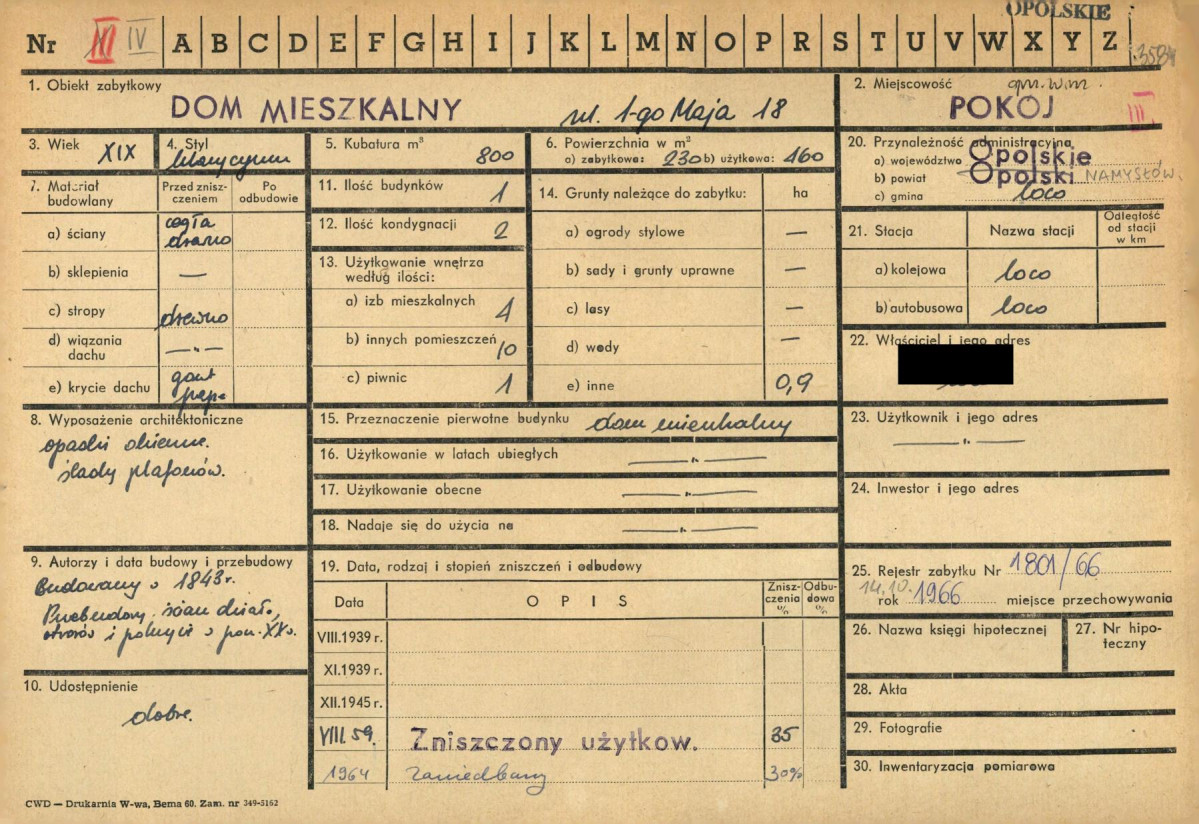 OPOLSKIE
Nr III IV A B C D E F G H I J K L M N O P R S T U V W X Y Z
1. Obiekt zabytkowy
DOM MIESZKALNY ul. 1-go Maja 18
2. Miejscowość gm. w.m.
POKÓJ III
3. Wiek XIX
4. Styl
klasycyzm
5. Kubatura m³
800
6. Powierzchnia w m²
a) zabytkowa: 230 b) użytkowa: 460
20. Przynależność administracyjna
a) województwo Opolskie
b) powiat Opolski NAMYSŁÓW.
c) gmina loco
7. Materiał budowlany
Przed zniszczeniem
Po odbudowie
a) ściany cegła
drewno
b) sklepienia —
c) stropy drewno
d) wiązania
dachu —„—
e) krycie dachu gont
papa
11. Ilość budynków 1
12. Ilość kondygnacji 2
13. Użytkowanie wnętrza
według ilości:
a) izb mieszkalnych 4
b) innych pomieszczeń 10
c) piwnic 1
14. Grunty należące do zabytku: ha
a) ogrody stylowe —
b) sady i grunty uprawne —
c) lasy —
d) wody —
e) inne 0,9
21. Stacja
Nazwa stacji
Odległość
od stacji
w km
a) kolejowa loco
b) autobusowa loco
22. Właściciel i jego adres
8. Wyposażenie architektoniczne
opaski okienne.
ślady plafonów.
15. Przeznaczenie pierwotne budynku dom mieszkalny
16. Użytkowanie w latach ubiegłych —„—
17. Użytkowanie obecne —„—
18. Nadaje się do użycia na —„—
23. Użytkownik i jego adres
—„—
24. Inwestor i jego adres
9. Autorzy i data budowy i przebudowy
Budowany o 1843 r.
Przebudowy ścian dział.,
otworów i pokrycie o pow. XX w.
10. Udostępnienie
dobre.
19. Data, rodzaj i stopień zniszczeń i odbudowy
Data
OPIS
Zniszczenia %
Odbudowa %
VIII.1939 r.
XI.1939 r.
XII.1945 r.
VIII.59. Zniszczony użytkow. 35
1964 zaniedbany 30%
25. Rejestr zabytku Nr 1801/66
14.10.
rok 1966 miejsce przechowywania
26. Nazwa księgi hipotecznej
27. Nr hipo-
teczny
28. Akta
29. Fotografie
30. Inwentaryzacja pomiarowa
CWD — Drukarnia W-wa, Bema 60. Zam. nr 349-5162